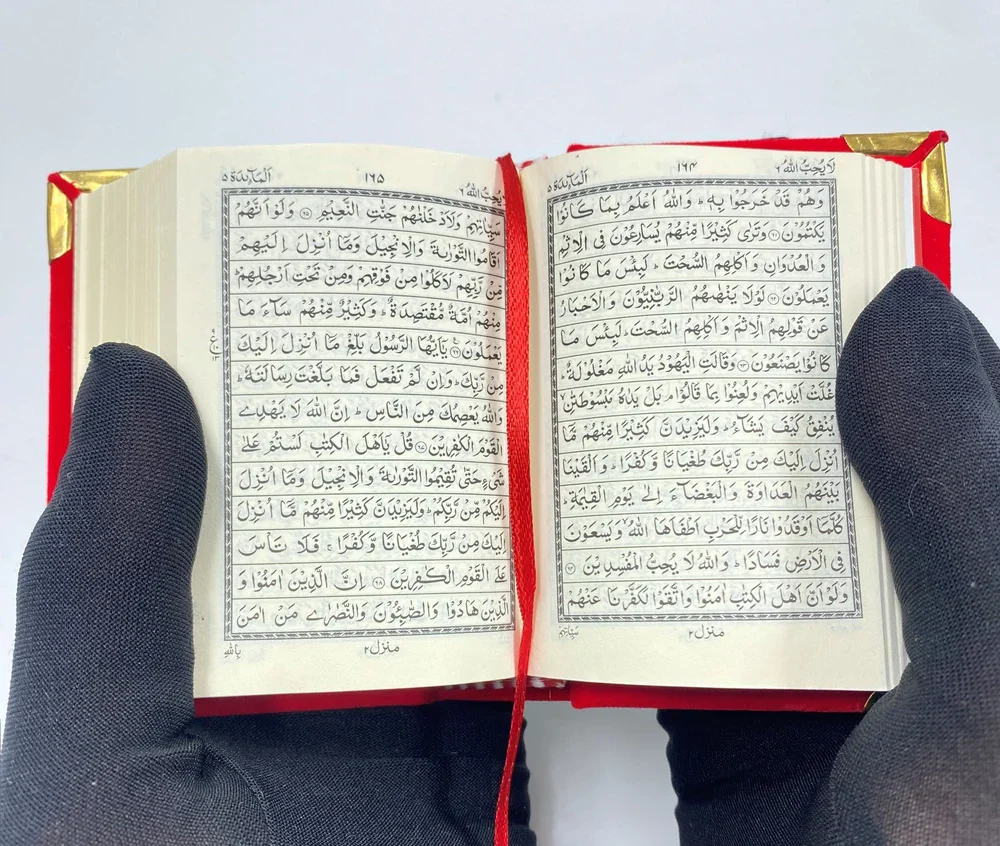 لَا يُحِبُّ اللّٰهُ ٦ ١٦۴ اَلْمَآئِدَة ٥
وَهُمْ قَدْ خَرَجُوْا بِهٖ ؕ وَاللّٰهُ اَعْلَمُ بِمَا كَانُوْا
يَكْتُمُوْنَ ﴿٦١﴾ وَتَرٰى كَثِيْرًا مِّنْهُمْ يُسَارِعُوْنَ فِى الْاِثْمِ
وَالْعُدْوَانِ وَاَكْلِهِمُ السُّحْتَ ؕ لَبِئْسَ مَا كَانُوْا
يَعْمَلُوْنَ ﴿٦٢﴾ لَوْلَا يَنْهٰىهُمُ الرَّبّٰنِيُّوْنَ وَالْاَحْبَارُ
عَنْ قَوْلِهِمُ الْاِثْمَ وَاَكْلِهِمُ السُّحْتَ ؕ لَبِئْسَ مَا
كَانُوْا يَصْنَعُوْنَ ﴿٦٣﴾ وَقَالَتِ الْيَهُوْدُ يَدُ اللّٰهِ مَغْلُوْلَةٌ ؕ
غُلَّتْ اَيْدِيْهِمْ وَلُعِنُوْا بِمَا قَالُوْا ۘ بَلْ يَدٰهُ مَبْسُوْطَتٰنِ ۙ
يُنْفِقُ كَيْفَ يَشَآءُ ؕ وَلَيَزِيْدَنَّ كَثِيْرًا مِّنْهُمْ مَّآ
اُنْزِلَ اِلَيْكَ مِنْ رَّبِّكَ طُغْيَانًا وَّكُفْرًا ؕ وَاَلْقَيْنَا
بَيْنَهُمُ الْعَدَاوَةَ وَالْبَغْضَآءَ اِلٰى يَوْمِ الْقِيٰمَةِ ؕ
كُلَّمَآ اَوْقَدُوْا نَارًا لِّلْحَرْبِ اَطْفَاَهَا اللّٰهُ ۙ وَيَسْعَوْنَ
فِى الْاَرْضِ فَسَادًا ؕ وَاللّٰهُ لَا يُحِبُّ الْمُفْسِدِيْنَ ﴿٦٤﴾
وَلَوْ اَنَّ اَهْلَ الْكِتٰبِ اٰمَنُوْا وَاتَّقَوْا لَكَفَّرْنَا عَنْهُمْ
منزل ٢ سَيِّاٰتِهِمْ
يُحِبُّ اللّٰهُ ٦ ١٦٥ اَلْمَآئِدَة ٥
سَيِّاٰتِهِمْ وَلَاَدْخَلْنٰهُمْ جَنّٰتِ النَّعِيْمِ ﴿٦٥﴾ وَلَوْ اَنَّهُمْ
اَقَامُوا التَّوْرٰىةَ وَالْاِنْجِيْلَ وَمَآ اُنْزِلَ اِلَيْهِمْ
مِّنْ رَّبِّهِمْ لَاَكَلُوْا مِنْ فَوْقِهِمْ وَمِنْ تَحْتِ اَرْجُلِهِمْ ؕ
مِنْهُمْ اُمَّةٌ مُّقْتَصِدَةٌ ؕ وَكَثِيْرٌ مِّنْهُمْ سَآءَ مَا
يَعْمَلُوْنَ ﴿٦٦﴾ يٰٓاَيُّهَا الرَّسُوْلُ بَلِّغْ مَآ اُنْزِلَ اِلَيْكَ
مِنْ رَّبِّكَ ؕ وَاِنْ لَّمْ تَفْعَلْ فَمَا بَلَّغْتَ رِسَالَتَهٗ ؕ
وَاللّٰهُ يَعْصِمُكَ مِنَ النَّاسِ ؕ اِنَّ اللّٰهَ لَا يَهْدِى
الْقَوْمَ الْكٰفِرِيْنَ ﴿٦٧﴾ قُلْ يٰٓاَهْلَ الْكِتٰبِ لَسْتُمْ عَلٰى
شَىْءٍ حَتّٰى تُقِيْمُوا التَّوْرٰىةَ وَالْاِنْجِيْلَ وَمَآ اُنْزِلَ
اِلَيْكُمْ مِّنْ رَّبِّكُمْ ؕ وَلَيَزِيْدَنَّ كَثِيْرًا مِّنْهُمْ مَّآ اُنْزِلَ
اِلَيْكَ مِنْ رَّبِّكَ طُغْيَانًا وَّكُفْرًا ۚ فَلَا تَاْسَ
عَلَى الْقَوْمِ الْكٰفِرِيْنَ ﴿٦٨﴾ اِنَّ الَّذِيْنَ اٰمَنُوْا وَ
الَّذِيْنَ هَادُوْا وَالصّٰبِـُٔوْنَ وَالنَّصٰرٰى مَنْ اٰمَنَ
منزل ٢ بِاللّٰهِ